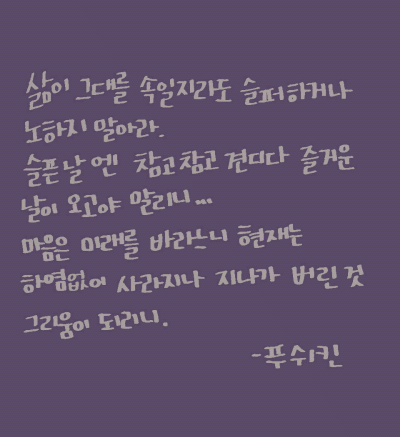 삶이 그대를 속일지라도 슬퍼하거나
노하지 말아라.
슬픈날엔 참고참고 견디다 즐거운
날이 오고야 말리니...
마음은 미래를 바라느니 현재는
하염없이 사라지나 지나가 버린 것
그리움이 되리니.
-푸쉬킨